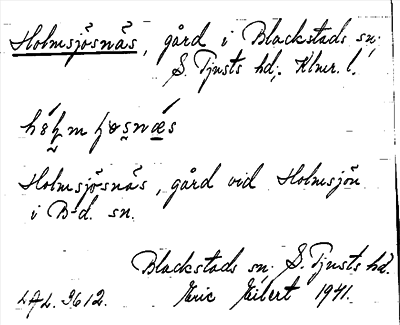 Holmsjösnäs, gård i Blackstads sn.
S. Tjusts hd, Klmr. l.
Holmsjösnäs, gård vid Holmsjön
i B-d. sn.
Blackstads sn. S. Tjusts hd.
Eric Eilert 1941.